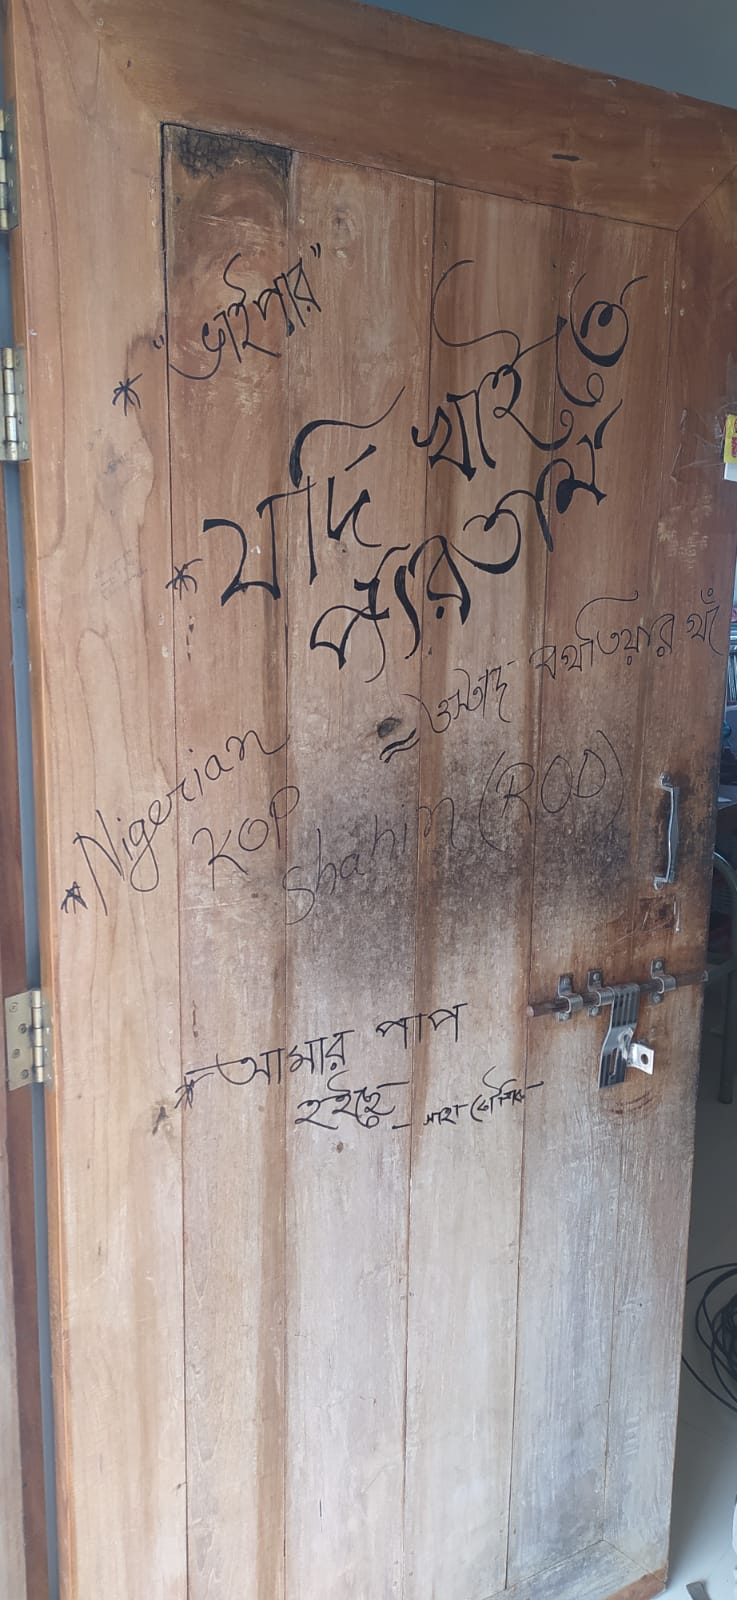 * "ভাইপার"
* যদি খাইতে
পারতাম
= ওস্তাদ বখতিয়ার খাঁ
* Nigerian
KOP
Shahin (ROD)
* আমার পাপ
হইছে - সাহা কৌশিক